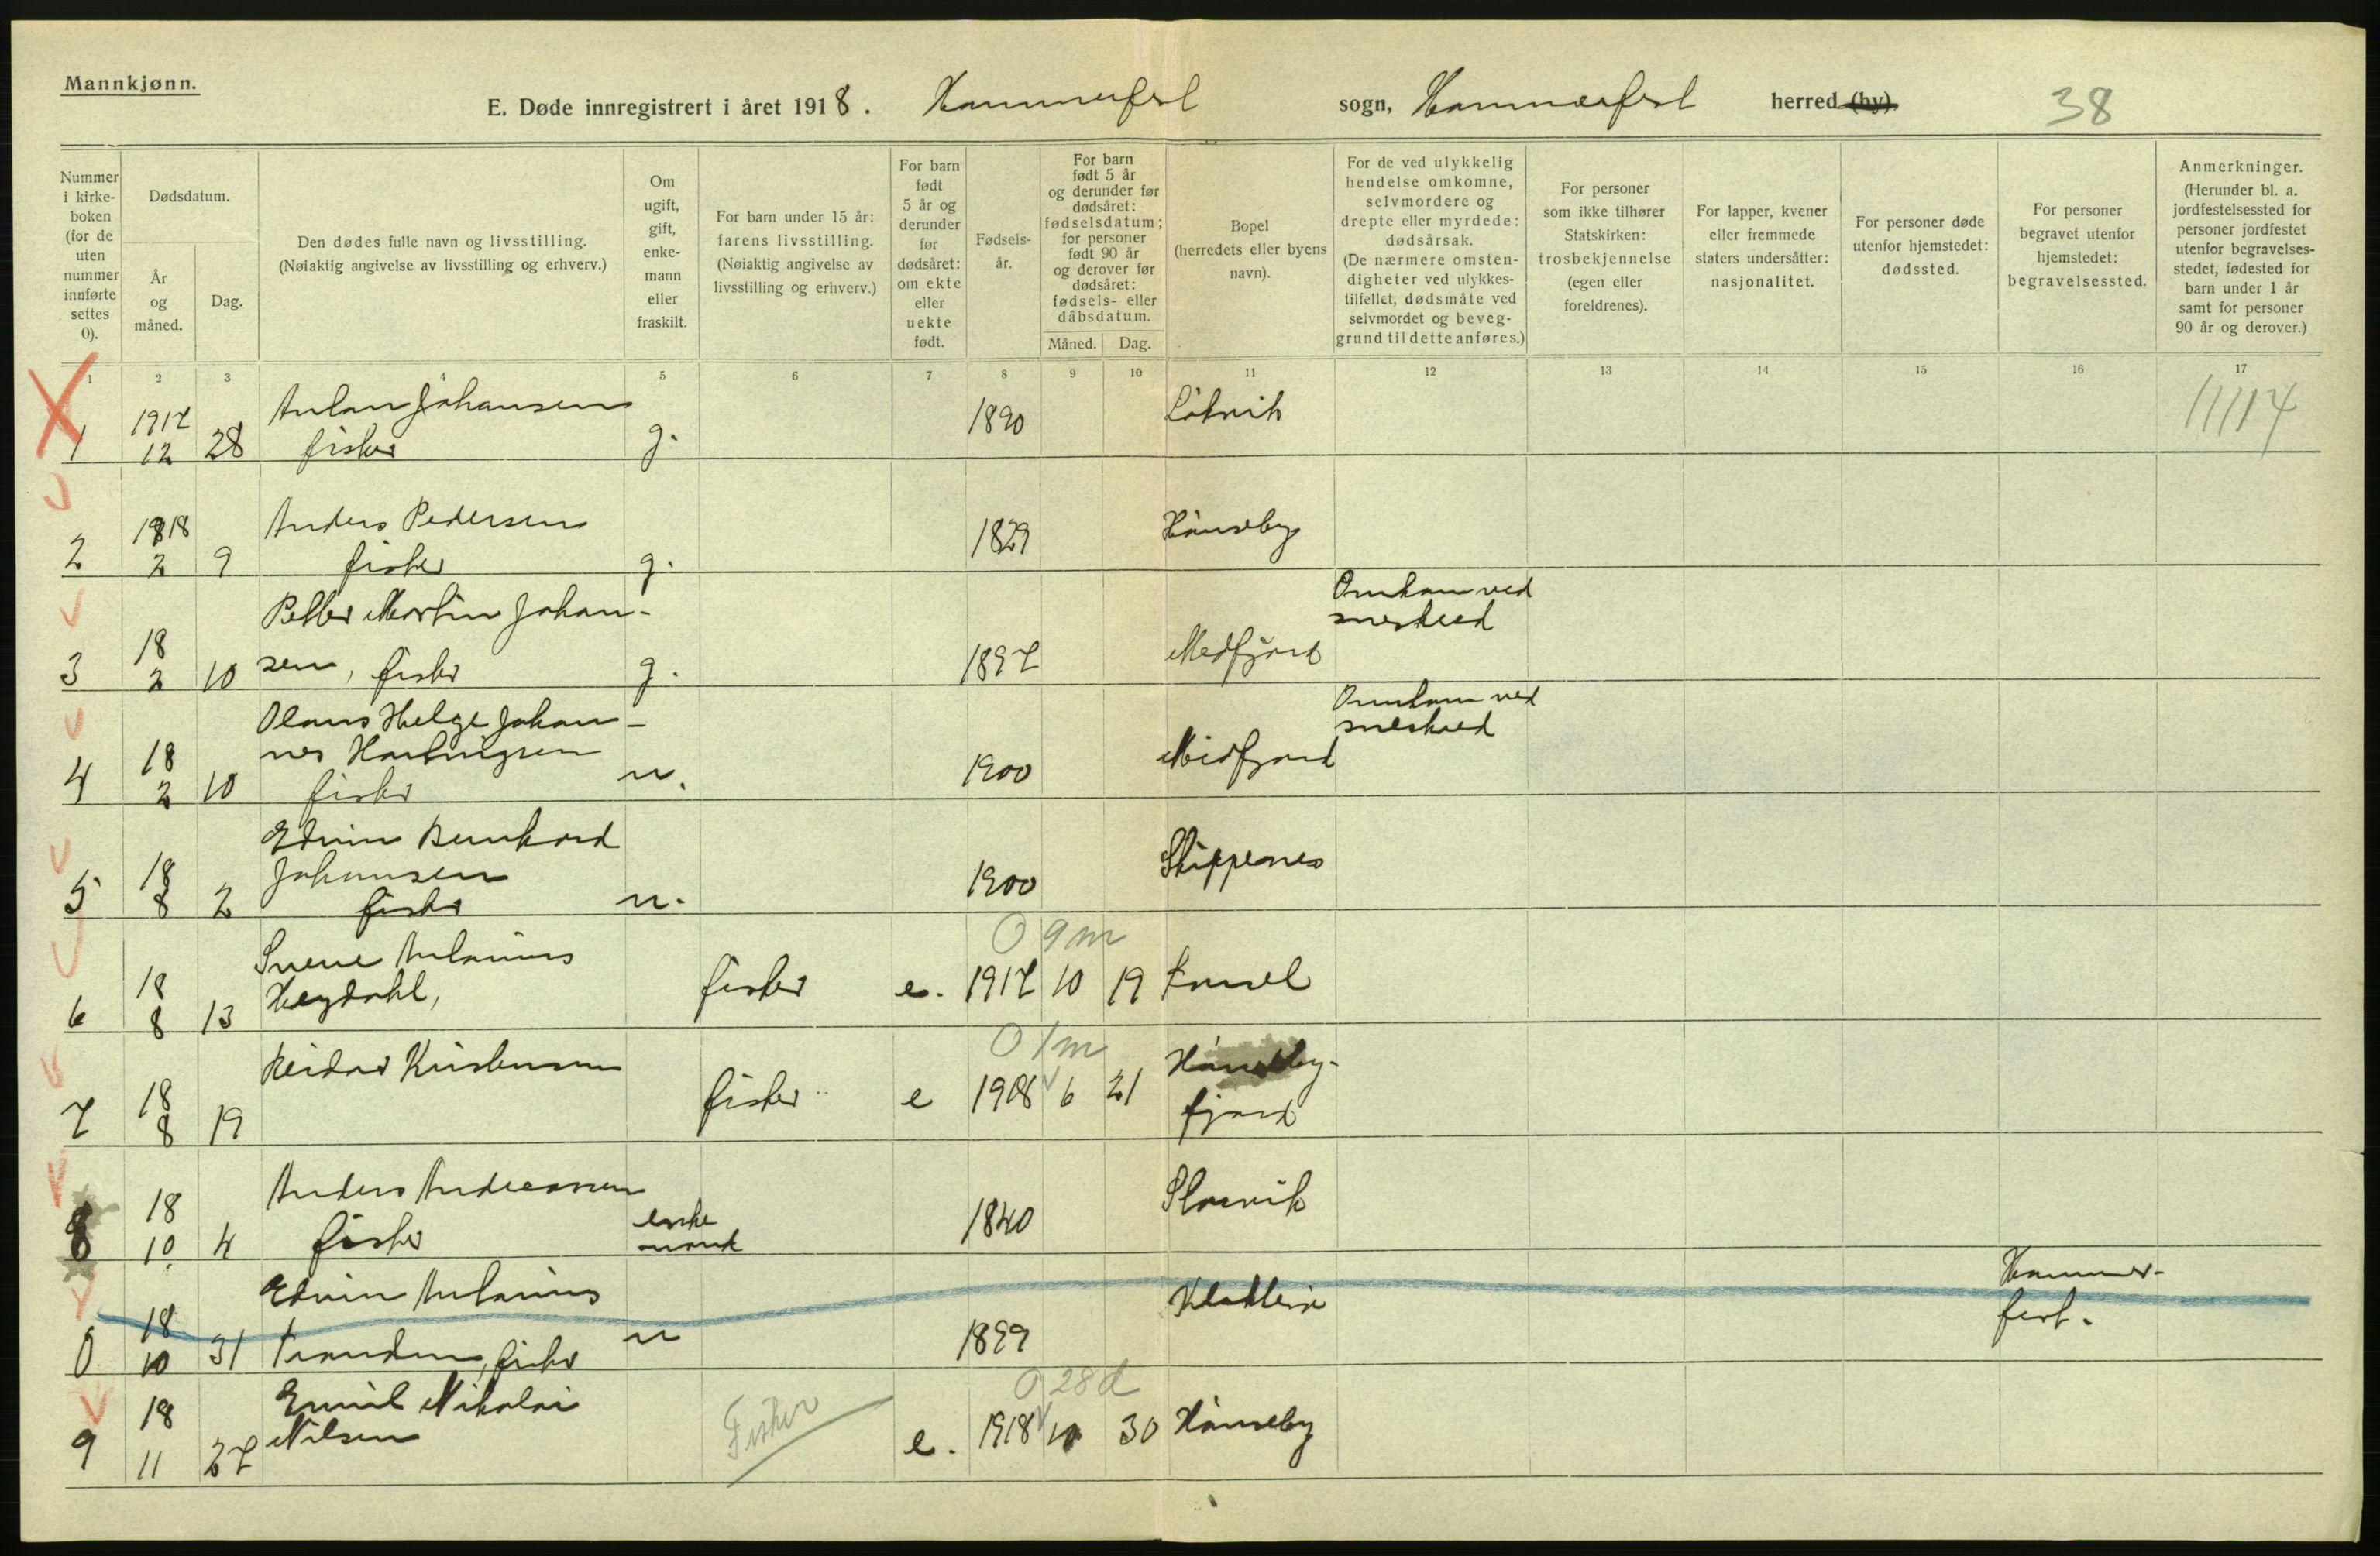 Mannkjønn.
E. Døde innregistrert i året 1918. Hammerfest sogn, Hammerfest herred (by). 38
Nummer i kirke-boken (for de uten nummer innførte settes 0).
Dødsdatum.
År og måned.
Dag.
Den dødes fulle navn og livsstilling.
(Nøiaktig angivelse av livsstilling og erhverv.)
Om ugift, gift, enke-mann eller fraskilt.
For barn under 15 år: farens livsstilling.
(Nøiaktig angivelse av livsstilling og erhverv.)
For barn født 5 år og derunder før dødsåret: om ekte eller uekte født.
Fødsels-år.
For barn født 5 år og derunder før dødsåret: fødselsdatum; for personer født 90 år og derover før dødsåret: fødsels- eller dåbsdatum.
Måned. Dag.
Bopel (herredets eller byens navn).
For de ved ulykkelig hendelse omkomne, selvmordere og drepte eller myrdede: dødsårsak.
(De nærmere omsten-digheter ved ulykkes-tilfellet, dødsmåte ved selvmordet og beveg-grund til dette anføres.)
For personer som ikke tilhører Statskirken: trosbekjennelse (egen eller foreldrenes).
For lapper, kvener eller fremmede staters undersåtter: nasjonalitet.
For personer døde utenfor hjemstedet: dødssted.
For personer begravet utenfor hjemstedet: begravelsessted.
Anmerkninger.
(Herunder bl. a. jordfestelsessted for personer jordfestet utenfor begravelses-stedet, fødested for barn under 1 år samt for personer 90 år og derover.)
1 2 3 4 5 6 7 8 9 10 11 12 13 14 15 16 17
1917 Anton Johansen 1890
1 12 28 fisker g.
1918 Anders Pedersen 1829 Hönseby
2 2 9 fisker g.
Petter Martin Johan- Omkom ved
18 sneskred
3 2 10 sen, fisker g. 1897 Medfjord
Olans Helge Johan- Omkom ved
18 nes Hartvigsen sneskred
4 2 10 fisker u. 1900 Medfjord
Edvin Bernhard
18 Johansen 1900 Skippernes
5 8 2 fisker u.
0 9 m
18 Sverre Antonius
6 8 13 Heydahl, fisker e. 1917 10 19
0 1 m
18 Reidar Kristensen Hönseby-
7 8 19 fisker e 1918 6 21 fjord
18 Anders Andreassen enke
8 10 4 fisker mand 1840
18 Edvin Antonius Hammer-
0 10 31 fisker u 1899 fest.
0 28 d
18 Emil Nikolai
9 11 27 Nilsen Fisker e. 1918 10 30 Hönseby